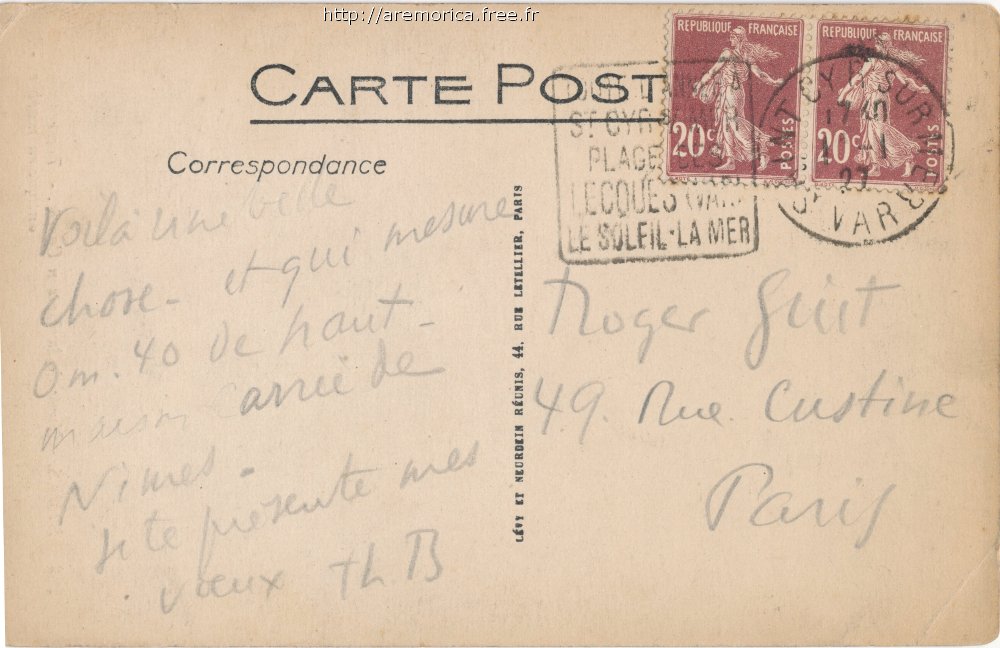 http://aremorica.free.fr
CARTE POST
Correspondance
RÉPUBLIQUE FRANÇAISE
20c
POSTES
RÉPUBLIQUE FRANÇAISE
20c
POSTES
ST CYR
PLAGE DES
LECQUES (VAR)
LE SOLEIL-LA MER
SAINT CYR SUR MER
17 40
1
27
VAR
Voilà une belle
chose - et qui mesure
0m. 40 de haut -
maison Carrée de
Nimes -
je te présente mes
vœux th. B
LÉVY ET NEURDEIN RÉUNIS, 44, RUE LETELLIER, PARIS
Roger
49. Rue Custine
Paris